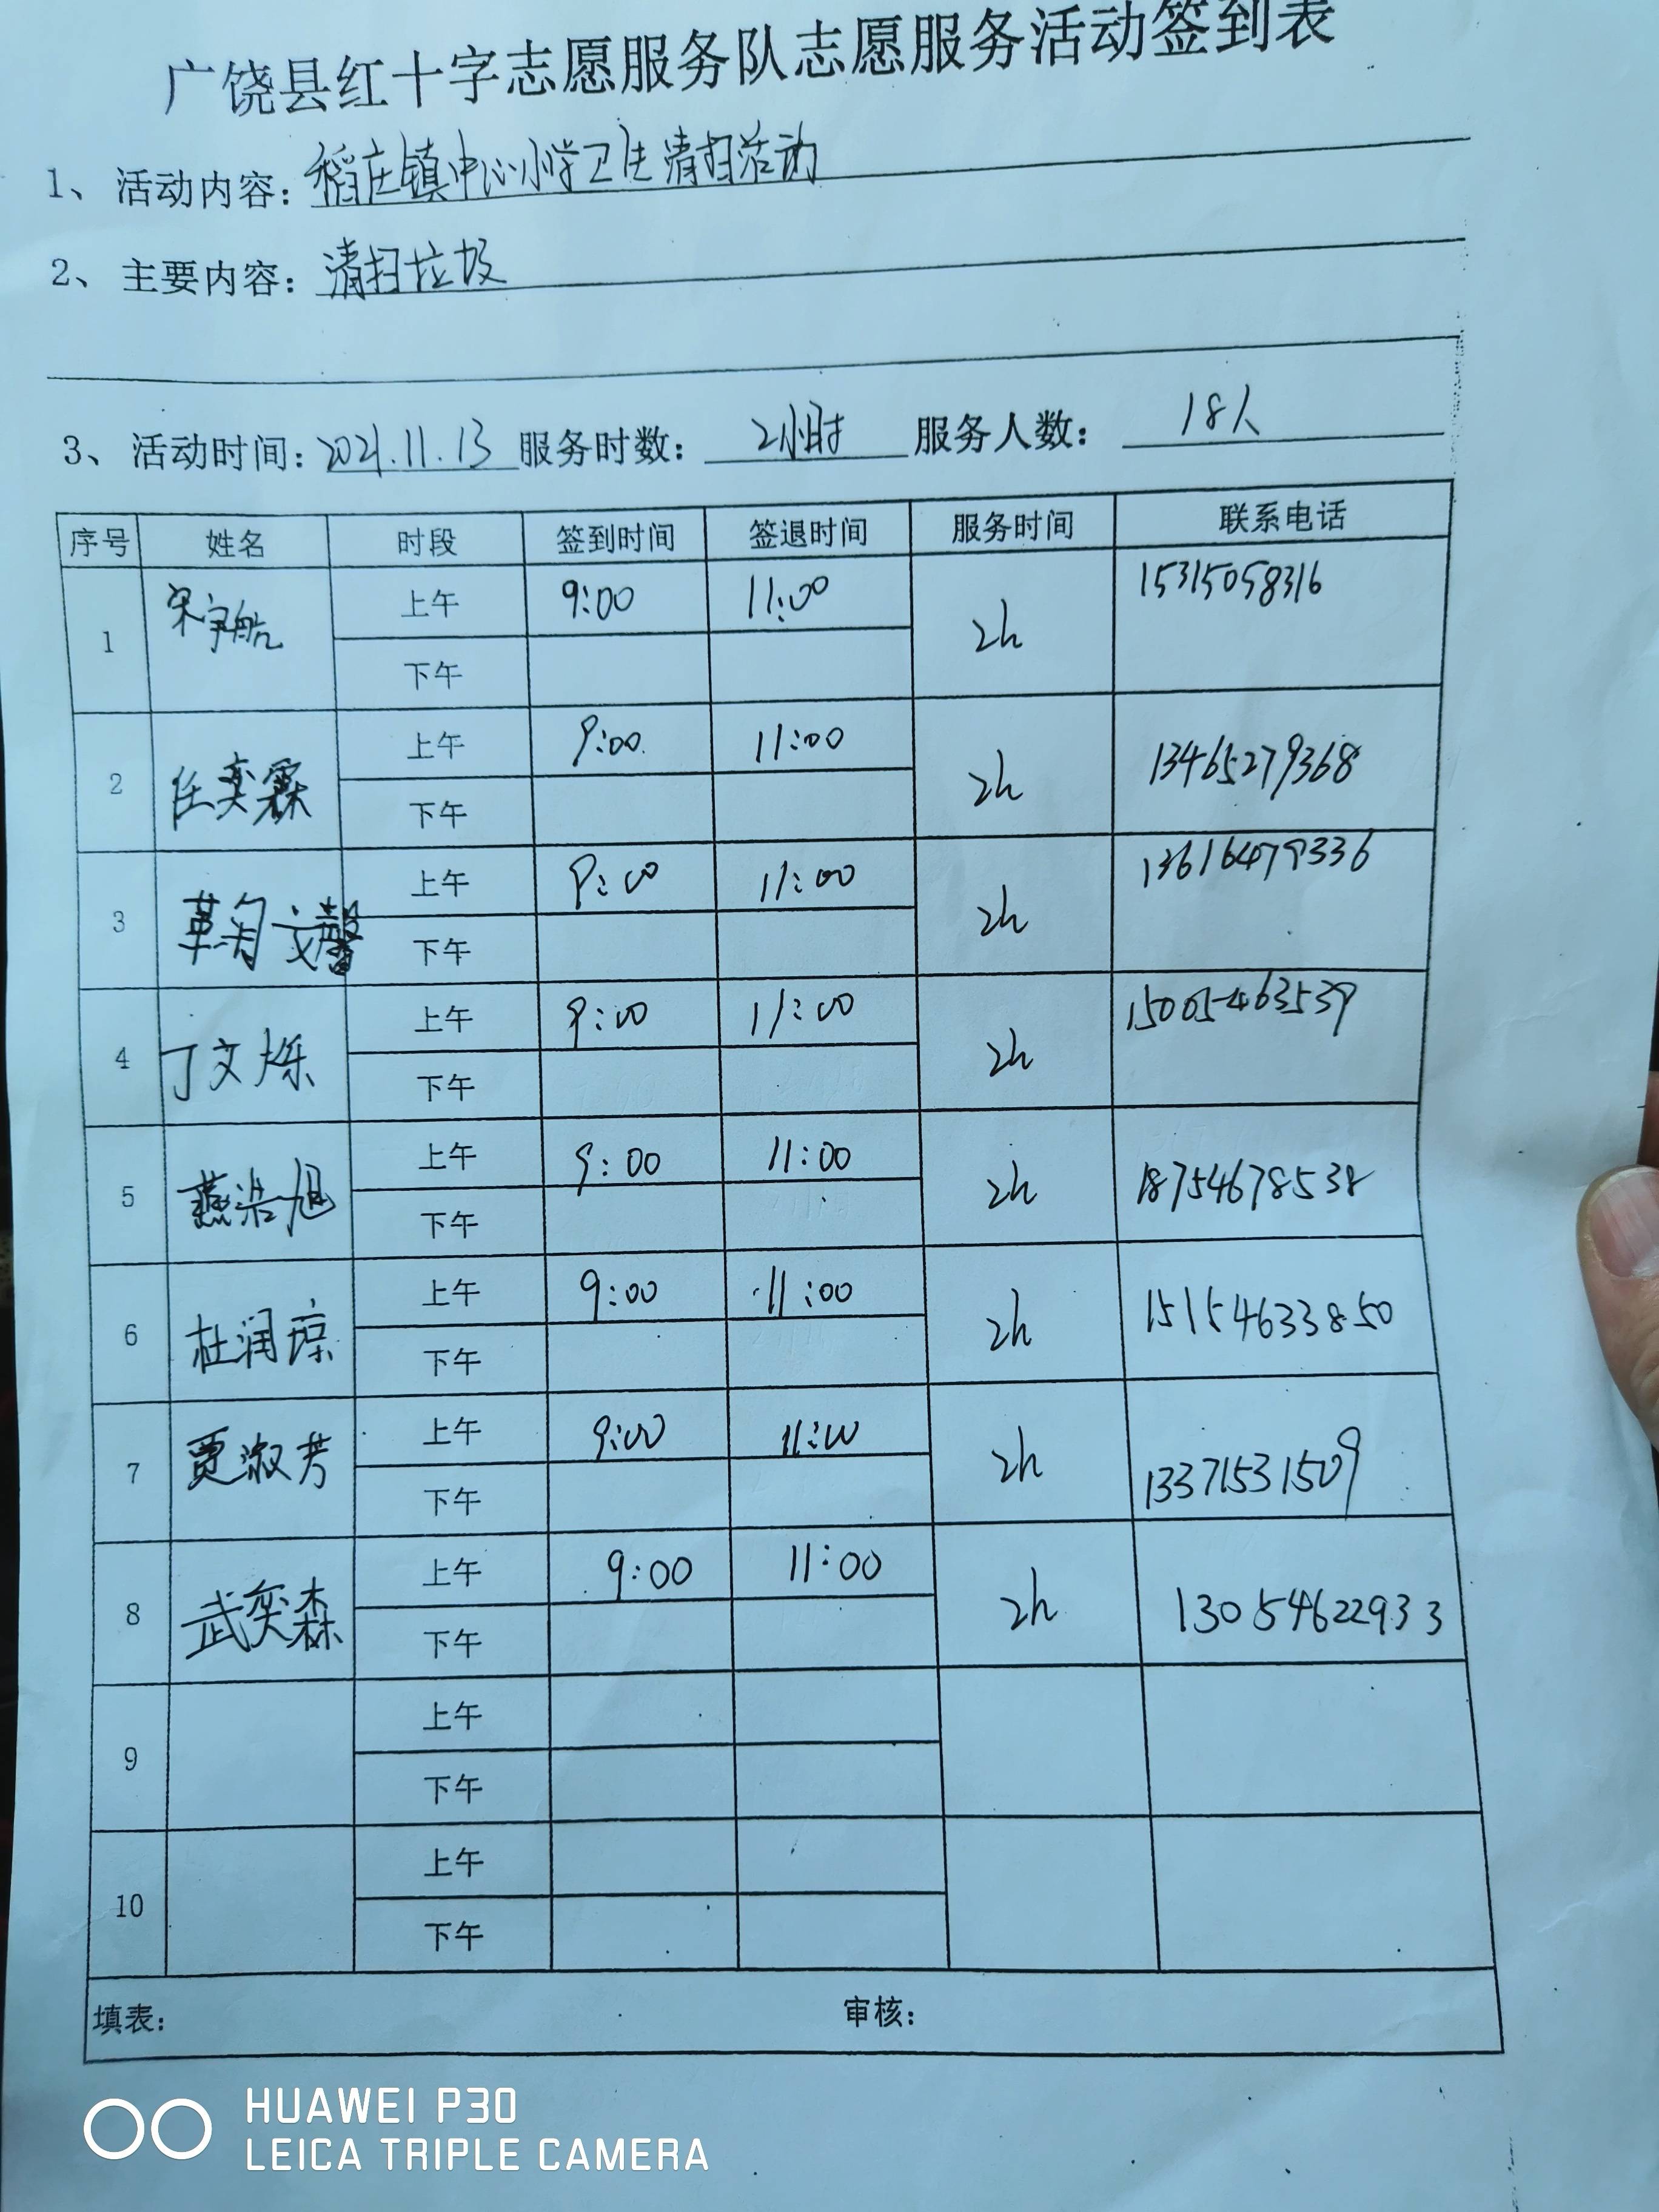 广饶县红十字志愿服务队志愿服务活动签到表
1、活动内容：稻庄镇中心小学卫生清扫活动
2、主要内容：清扫垃圾
3、活动时间：2021.11.13 服务时数：2小时 服务人数：18人
序号 姓名 时段 签到时间 签退时间 服务时间 联系电话
1 宋宇航 上午 9:00 11:00 2h 15315058316
下午
2 任奕霖 上午 9:00 11:00 2h 13465279368
下午
3 文馨 上午 9:00 11:00 2h 13616479336
下午
4 丁文烁 上午 9:00 11:00 2h 15005463539
下午
5 燕浩旭 上午 9:00 11:00 2h 18754678538
下午
6 杜润琼 上午 9:00 11:00 2h 15154633850
下午
7 贾淑芳 上午 9:00 11:00 2h 13371531509
下午
8 武奕森 上午 9:00 11:00 2h 13054622933
下午
9 上午
下午
10 上午
下午
填表： 审核：
HUAWEI P30
LEICA TRIPLE CAMERA